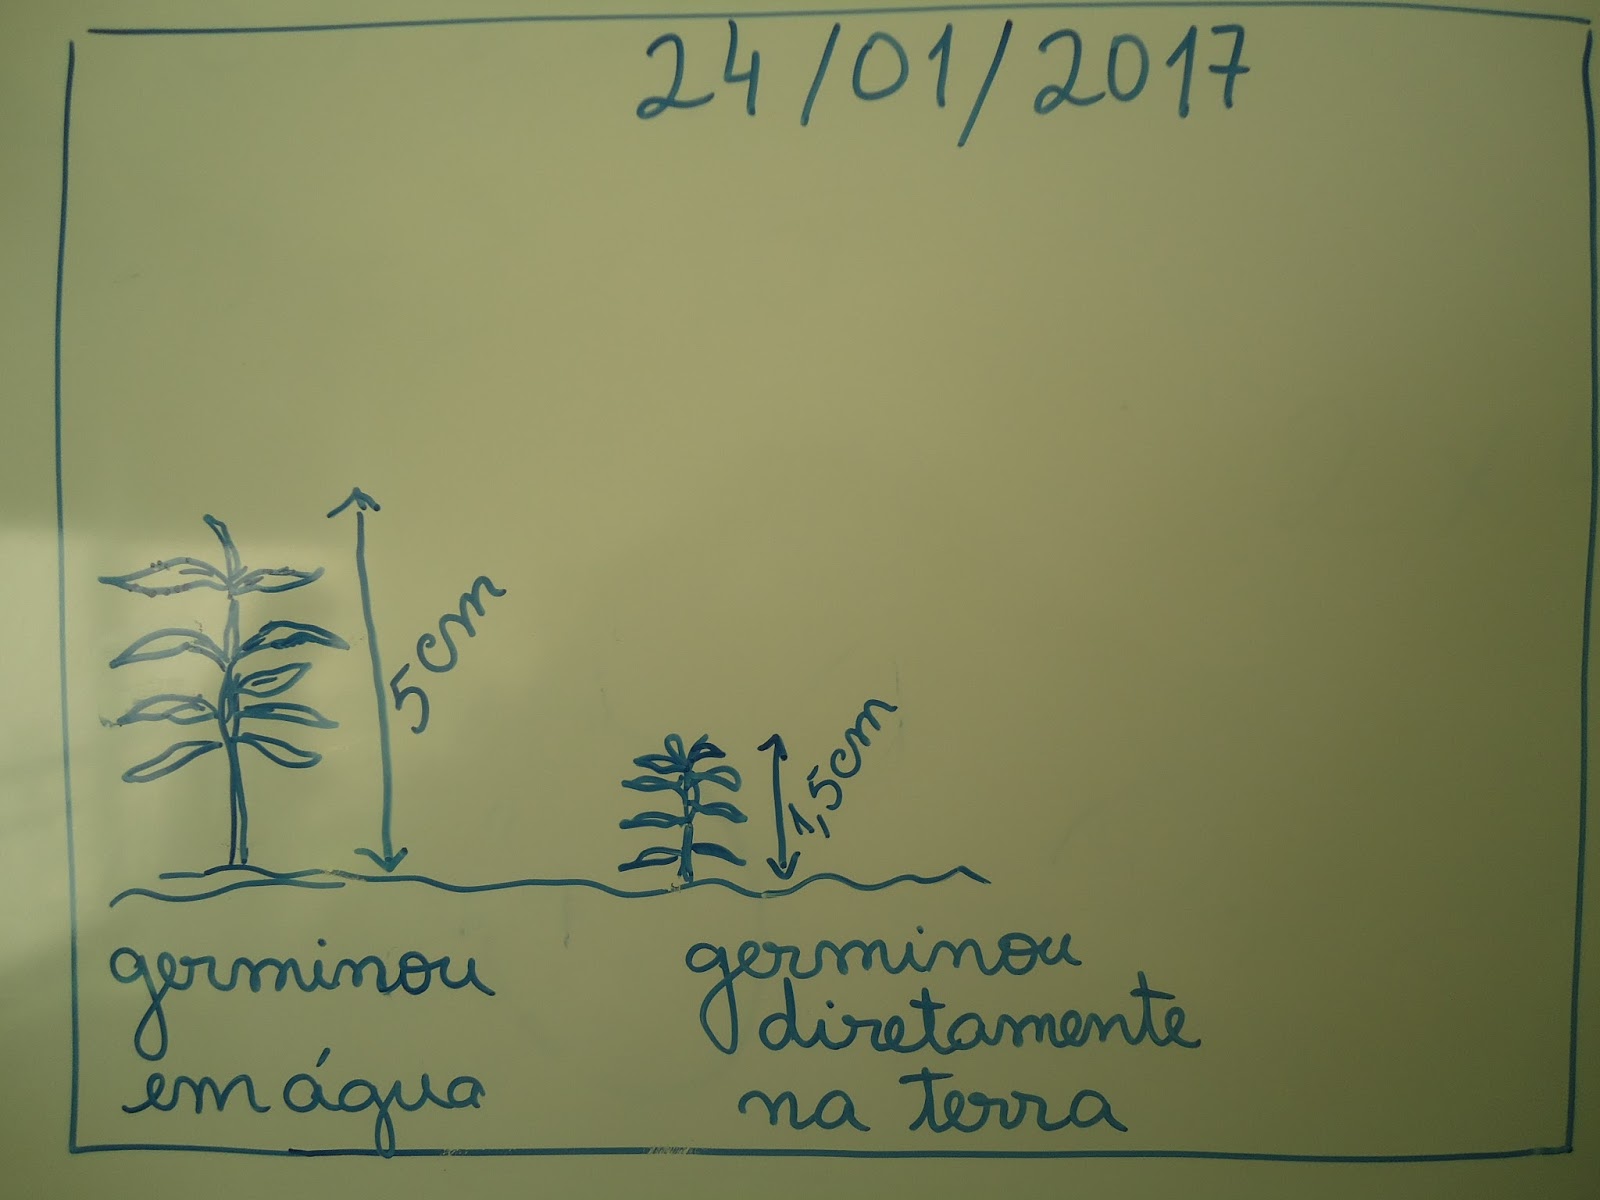 24/01/2017
5cm
1,5cm
germinou
em água
germinou
diretamente
na terra